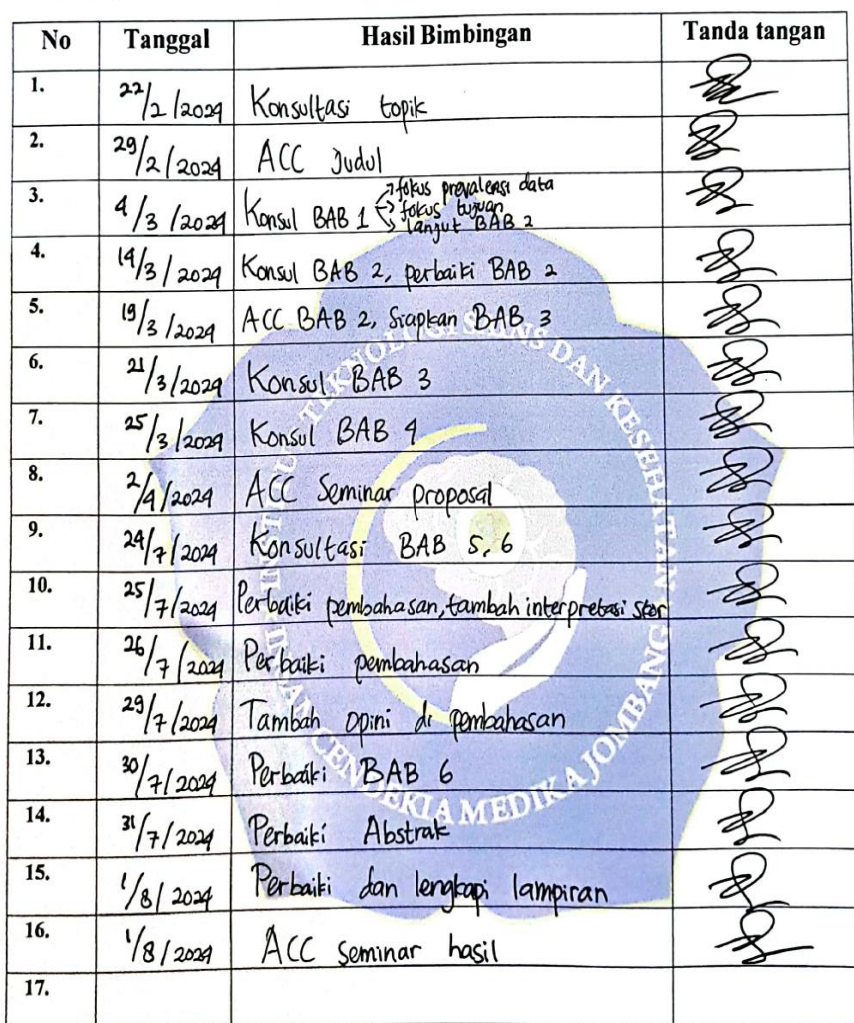 No Tanggal Hasil Bimbingan Tanda tangan
1. 22/2/2024 Konsultasi topik
2. 29/2/2024 ACC Judul
3. 4/3/2024 Konsul BAB 1 → fokus prevalensi data
→ fokus tujuan
→ lanjut BAB 2
4. 14/3/2024 Konsul BAB 2, perbaiki BAB 2
5. 19/3/2024 ACC BAB 2, Siapkan BAB 3
6. 21/3/2024 Konsul BAB 3
7. 25/3/2024 Konsul BAB 4
8. 2/4/2024 ACC Seminar proposal
9. 24/7/2024 Konsultasi BAB 5,6
10. 25/7/2024 Perbaiki pembahasan, tambah interpretasi skor
11. 26/7/2024 Perbaiki pembahasan
12. 29/7/2024 Tambah opini di pembahasan
13. 30/7/2024 Perbaiki BAB 6
14. 31/7/2024 Perbaiki Abstrak
15. 1/8/2024 Perbaiki dan lengkapi lampiran
16. 1/8/2024 ACC seminar hasil
17.
INSTITUT TEKNOLOGI SAINS DAN KESEHATAN
INSAN CENDEKIA MEDIKA JOMBANG